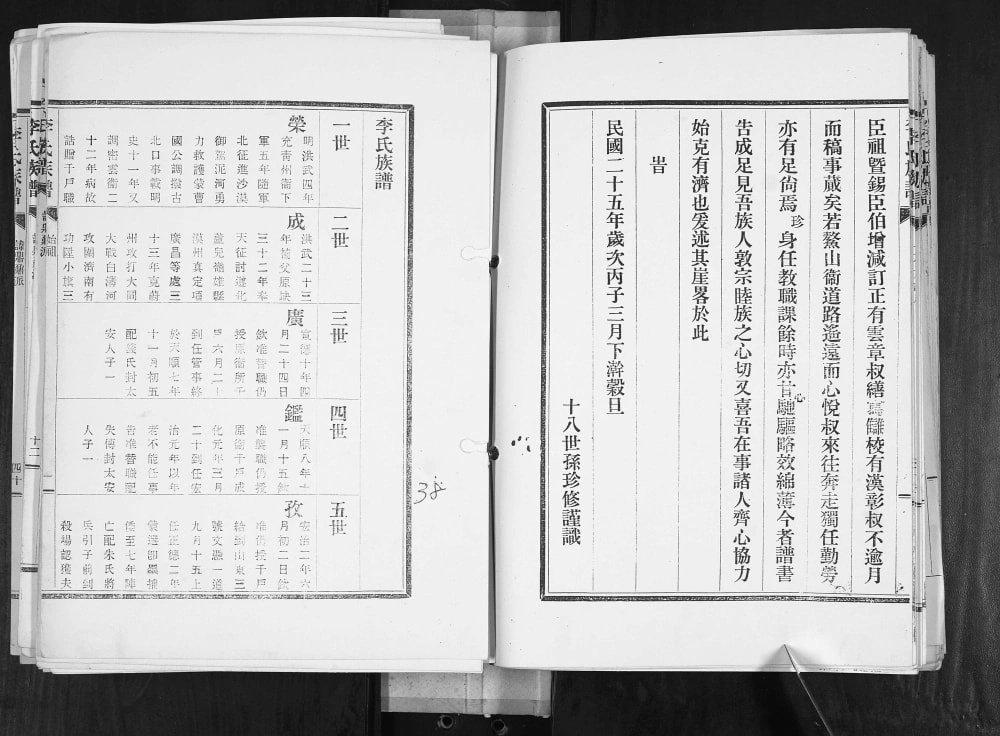 臣祖暨錫臣伯增減訂正有雲章叔繕寫讎校有漢彰叔不逾月
而稿事蕆矣若鰲山衞道路遙遠而心悅叔來往奔走獨任勤勞
亦有足尙焉珍身任教職課餘時亦甘心馳驅略效綿薄今者譜書
告成足見吾族人敦宗睦族之心切又喜吾在事諸人齊心協力
始克有濟也爰述其崖畧於此
旹
民國二十五年歲次丙子三月下澣穀旦
十八世孫珍修謹識
李氏族譜
一世
榮
明洪武四年
充靑州衞下
軍五年隨軍
北征進沙漠
御駕泥河勇
力救護蒙曹
國公調撥古
北口事載明
史十一年又
調密雲衞二
十二年病故
誥贈千戶職
二世
成
洪武二十三
年補父原缺
三十二年奉
天征討遵化
廣昌等處三
十三年克蔚
州攻打大同
大戰白溝河
攻圍濟南有
功陞小旗三
三世
廣
宣德十年四
月二十四日
欽准替職仍
授原衞所千
到任管事終
於天順七年
十一月初五
配錢氏封太
安人子一
四世
鑑
天順八年十
一月十五欽
准襲職仍授
原衞千戶成
化元年三月
二十到任宏
治元年以年
老不能任事
告准替職配
失傳封太安
人子一
五世
孜
宏治二年六
月初二日欽
准仍授千戶
給到山東三
號文憑一道
九月十五上
任正德二年
倭至七年陣
亡配朱氏將
兵引子前到
殺場認獲夫
38